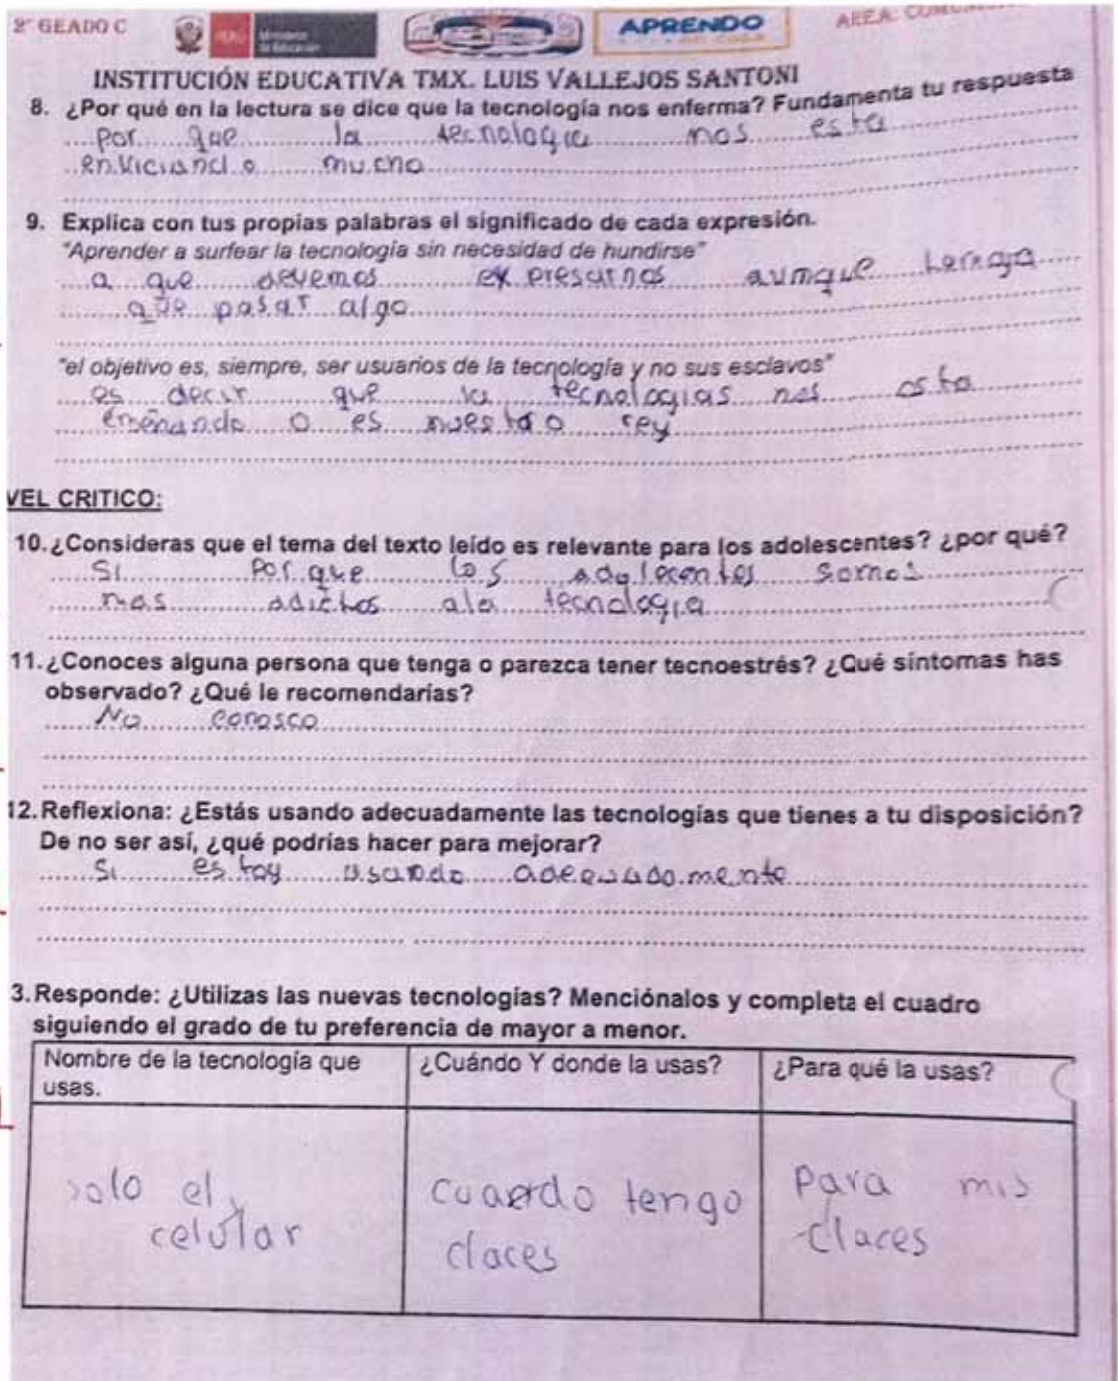 2° GRADO C
PERÚ Ministerio de Educación
APRENDO
EN CASA
AREA:
INSTITUCIÓN EDUCATIVA TMX. LUIS VALLEJOS SANTONI
8. ¿Por qué en la lectura se dice que la tecnología nos enferma? Fundamenta tu respuesta
por que la tecnologia nos esta
enviciando mucho
9. Explica con tus propias palabras el significado de cada expresión.
"Aprender a surfear la tecnología sin necesidad de hundirse"
a que devemos expresarnos aumque tenega
que pasar algo
"el objetivo es, siempre, ser usuarios de la tecnología y no sus esclavos"
es decir que la tecnologias nos esta
enseñando o es nuestro rey
VEL CRITICO:
10. ¿Consideras que el tema del texto leído es relevante para los adolescentes? ¿por qué?
Si Por que los adolecentes somos
mas adictos ala tecnologia
11. ¿Conoces alguna persona que tenga o parezca tener tecnoestrés? ¿Qué síntomas has
observado? ¿Qué le recomendarías?
No conosco
12. Reflexiona: ¿Estás usando adecuadamente las tecnologías que tienes a tu disposición?
De no ser así, ¿qué podrías hacer para mejorar?
Si estoy usando adecuadomente
3. Responde: ¿Utilizas las nuevas tecnologías? Menciónalos y completa el cuadro
siguiendo el grado de tu preferencia de mayor a menor.
Nombre de la tecnología que
usas.
¿Cuándo Y donde la usas?
¿Para qué la usas?
solo el
celular
cuando tengo
claces
Para mis
claces